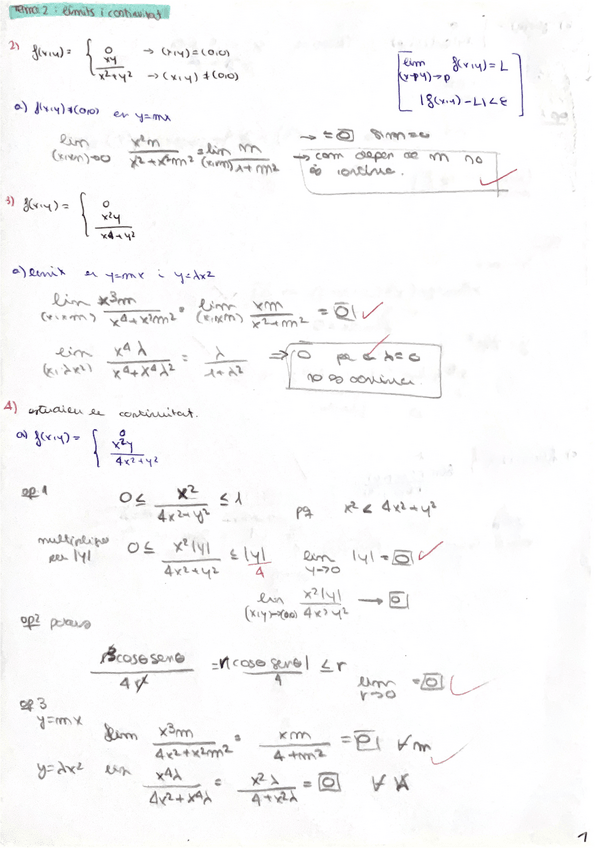 Tema 2: límits i continuitat
2) f(x,y) = { 0 → (x,y)=(0,0)
xy/(x²+y²) → (x,y)≠(0,0)
[ lim (x,y)→p f(x,y) = L
|f(x,y) - L| < ε ]
a) f(x,y)≠(0,0) en y=mx
lim (x,xm)→0 x²m/(x²+x²m²) = lim (x,xm) m/(1+m²) → = 0 si m=0
→ com depen de m no és continua.
3) f(x,y) = { 0
x²y/(x4+y²)
a) límit en y=mx i y=λx2
lim (x,xm) x³m/(x⁴+x²m²) = lim (x,xm) xm/(x²+m²) = 0
lim (x,λx²) x⁴λ/(x⁴+x⁴λ²) = λ/(1+λ²) ⇒ 0 λ=0
no és continua.
4) estudieu la continuitat.
a) f(x,y) = { 0
x²y/(4x²+y²)
op 1 0 ≤ x²/(4x²+y²) ≤ 1 pq x² ≤ 4x²+y²
multiplique per |y| 0 ≤ x²|y|/(4x²+y²) ≤ |y|/4 lim y→0 |y| = 0
lim (x,y)→(0,0) x²|y|/(4x²+y²) → 0
op2 polars
r³cosθsenθ/4r² = r|cosθ senθ|/4 ≤ r lim r→0 = 0
op 3
y=mx lim x³m/(4x²+x²m²) = xm/(4+m²) = 0 ∀m
y=λx2 lim x⁴λ/(4x²+x⁴λ) = x²λ/(4+x²λ) = 0 ∀λ
1